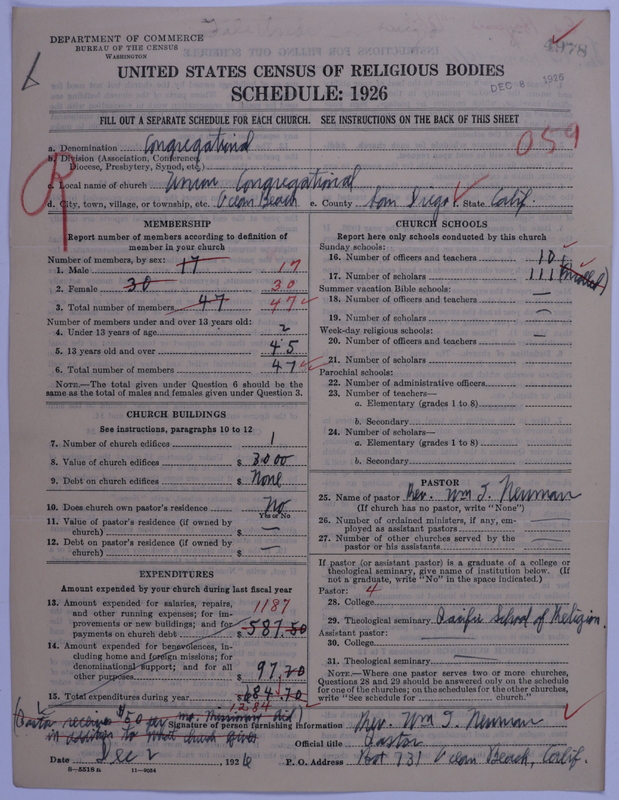 DEPARTMENT OF COMMERCE
BUREAU OF THE CENSUS
WASHINGTON
4978
DEC 8 1926
UNITED STATES CENSUS OF RELIGIOUS BODIES
SCHEDULE: 1926
FILL OUT A SEPARATE SCHEDULE FOR EACH CHURCH. SEE INSTRUCTIONS ON THE BACK OF THIS SHEET
059
R
a. Denomination Congregational
b. Division (Association, Conference, Diocese, Presbytery, Synod, etc.)
c. Local name of church Union Congregational
d. City, town, village, or township, etc. Ocean Beach e. County San Diego f. State Calif.
MEMBERSHIP
Report number of members according to definition of
member in your church
Number of members, by sex:
1. Male 17 17
2. Female 30 30
3. Total number of members 47 47
Number of members under and over 13 years old:
4. Under 13 years of age 2
5. 13 years old and over 45
6. Total number of members 47
NOTE.—The total given under Question 6 should be the
same as the total of males and females given under Question 3.
CHURCH BUILDINGS
See instructions, paragraphs 10 to 12
7. Number of church edifices 1
8. Value of church edifices $ 3000
9. Debt on church edifices $ None
10. Does church own pastor's residence No
Yes or No
11. Value of pastor's residence (if owned by
church) $ —
12. Debt on pastor's residence (if owned by
church) $ —
EXPENDITURES
Amount expended by your church during last fiscal year
13. Amount expended for salaries, repairs,
and other running expenses; for im-
provements or new buildings; and for
payments on church debt $ 587.50
1187
14. Amount expended for benevolences, in-
cluding home and foreign missions; for
denominational support; and for all
other purposes $ 97.20
15. Total expenditures during year $ 684.70
1284
CHURCH SCHOOLS
Report here only schools conducted by this church
Sunday schools:
16. Number of officers and teachers 10
17. Number of scholars 111 (Enrolled)
Summer vacation Bible schools:
18. Number of officers and teachers —
19. Number of scholars —
Week-day religious schools:
20. Number of officers and teachers —
21. Number of scholars
Parochial schools:
22. Number of administrative officers
23. Number of teachers—
a. Elementary (grades 1 to 8)
b. Secondary
24. Number of scholars—
a. Elementary (grades 1 to 8)
b. Secondary
PASTOR
25. Name of pastor Rev. Wm T. Neuman
(If church has no pastor, write "None")
26. Number of ordained ministers, if any, em-
ployed as assistant pastors —
27. Number of other churches served by the
pastor or his assistants —
If pastor (or assistant pastor) is a graduate of a college or
theological seminary, give name of institution below. (If
not a graduate, write "No" in the space indicated.)
Pastor: 4
28. College
29. Theological Seminary Pacific School of Religion.
Assistant pastor:
30. College —
31. Theological seminary —
NOTE.—Where one pastor serves two or more churches,
Questions 28 and 29 should be answered only on the schedule
for one of the churches; on the schedules for the other churches,
write "See schedule for church."
(Pastor receives $50 per mo. Missionary Aid)
in addition to what church gives
Signature of person furnishing information Rev. Wm T. Neuman
Official title Pastor
Date Dec 2, 1926 P. O. Address Box 731 Ocean Beach, Calif.
8—5518a 11—9054